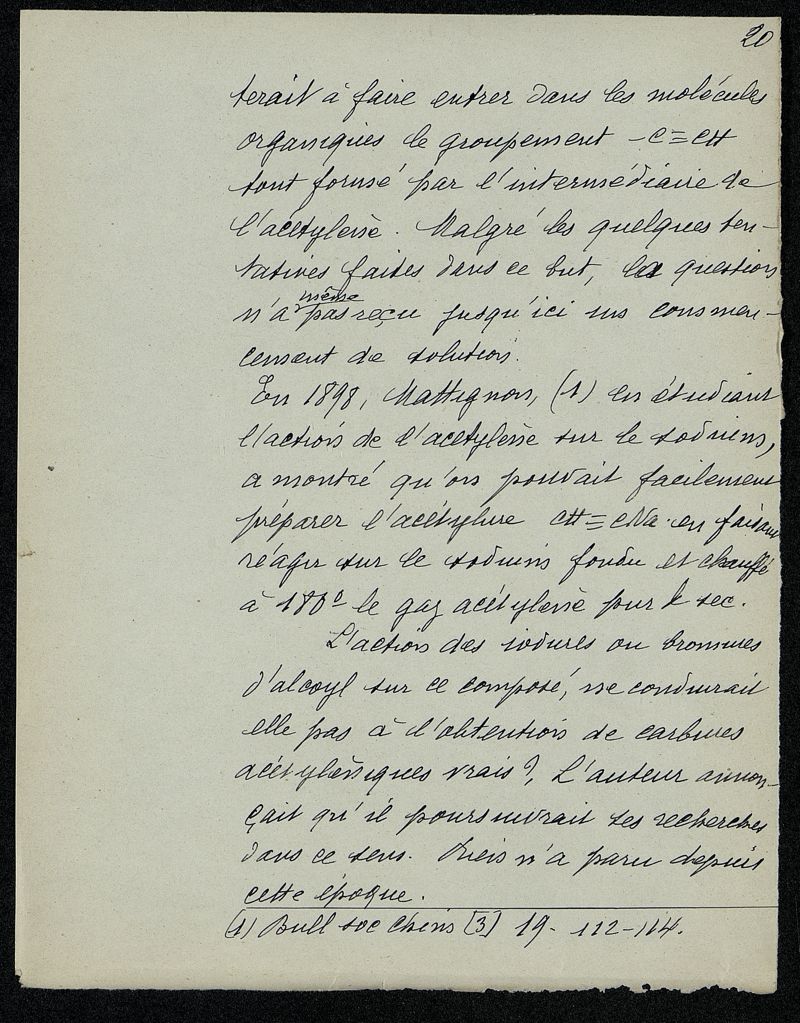 20
terait à faire entrer dans les molécules
organiques le groupement -C≡CH
tout formé par l'intermédiaire de
l'acétylène. Malgré les quelques ten-
tatives faites dans ce but, la question
même
n'a pas reçu jusqu'ici un commen-
cement de solution.
En 1898, Mattignon, (1) en étudiant
l'action de l'acétylène sur le sodium,
a montré qu'on pouvait facilement
préparer l'acétylure CH≡CNa en faisant
réagir sur le sodium fondu et chauffé
à 180° le gaz acétylène pur & sec.
L'action des iodures ou bromures
d'alcoyl sur ce composé, ne conduirait
elle pas à l'obtention de carbures
acétyléniques vrais?, L'auteur annon-
çait qu'il poursuivrait ses recherches
dans ce sens. Rien n'a paru depuis
cette époque.
(1) Bull soc Chim [3] 19. 112-114.